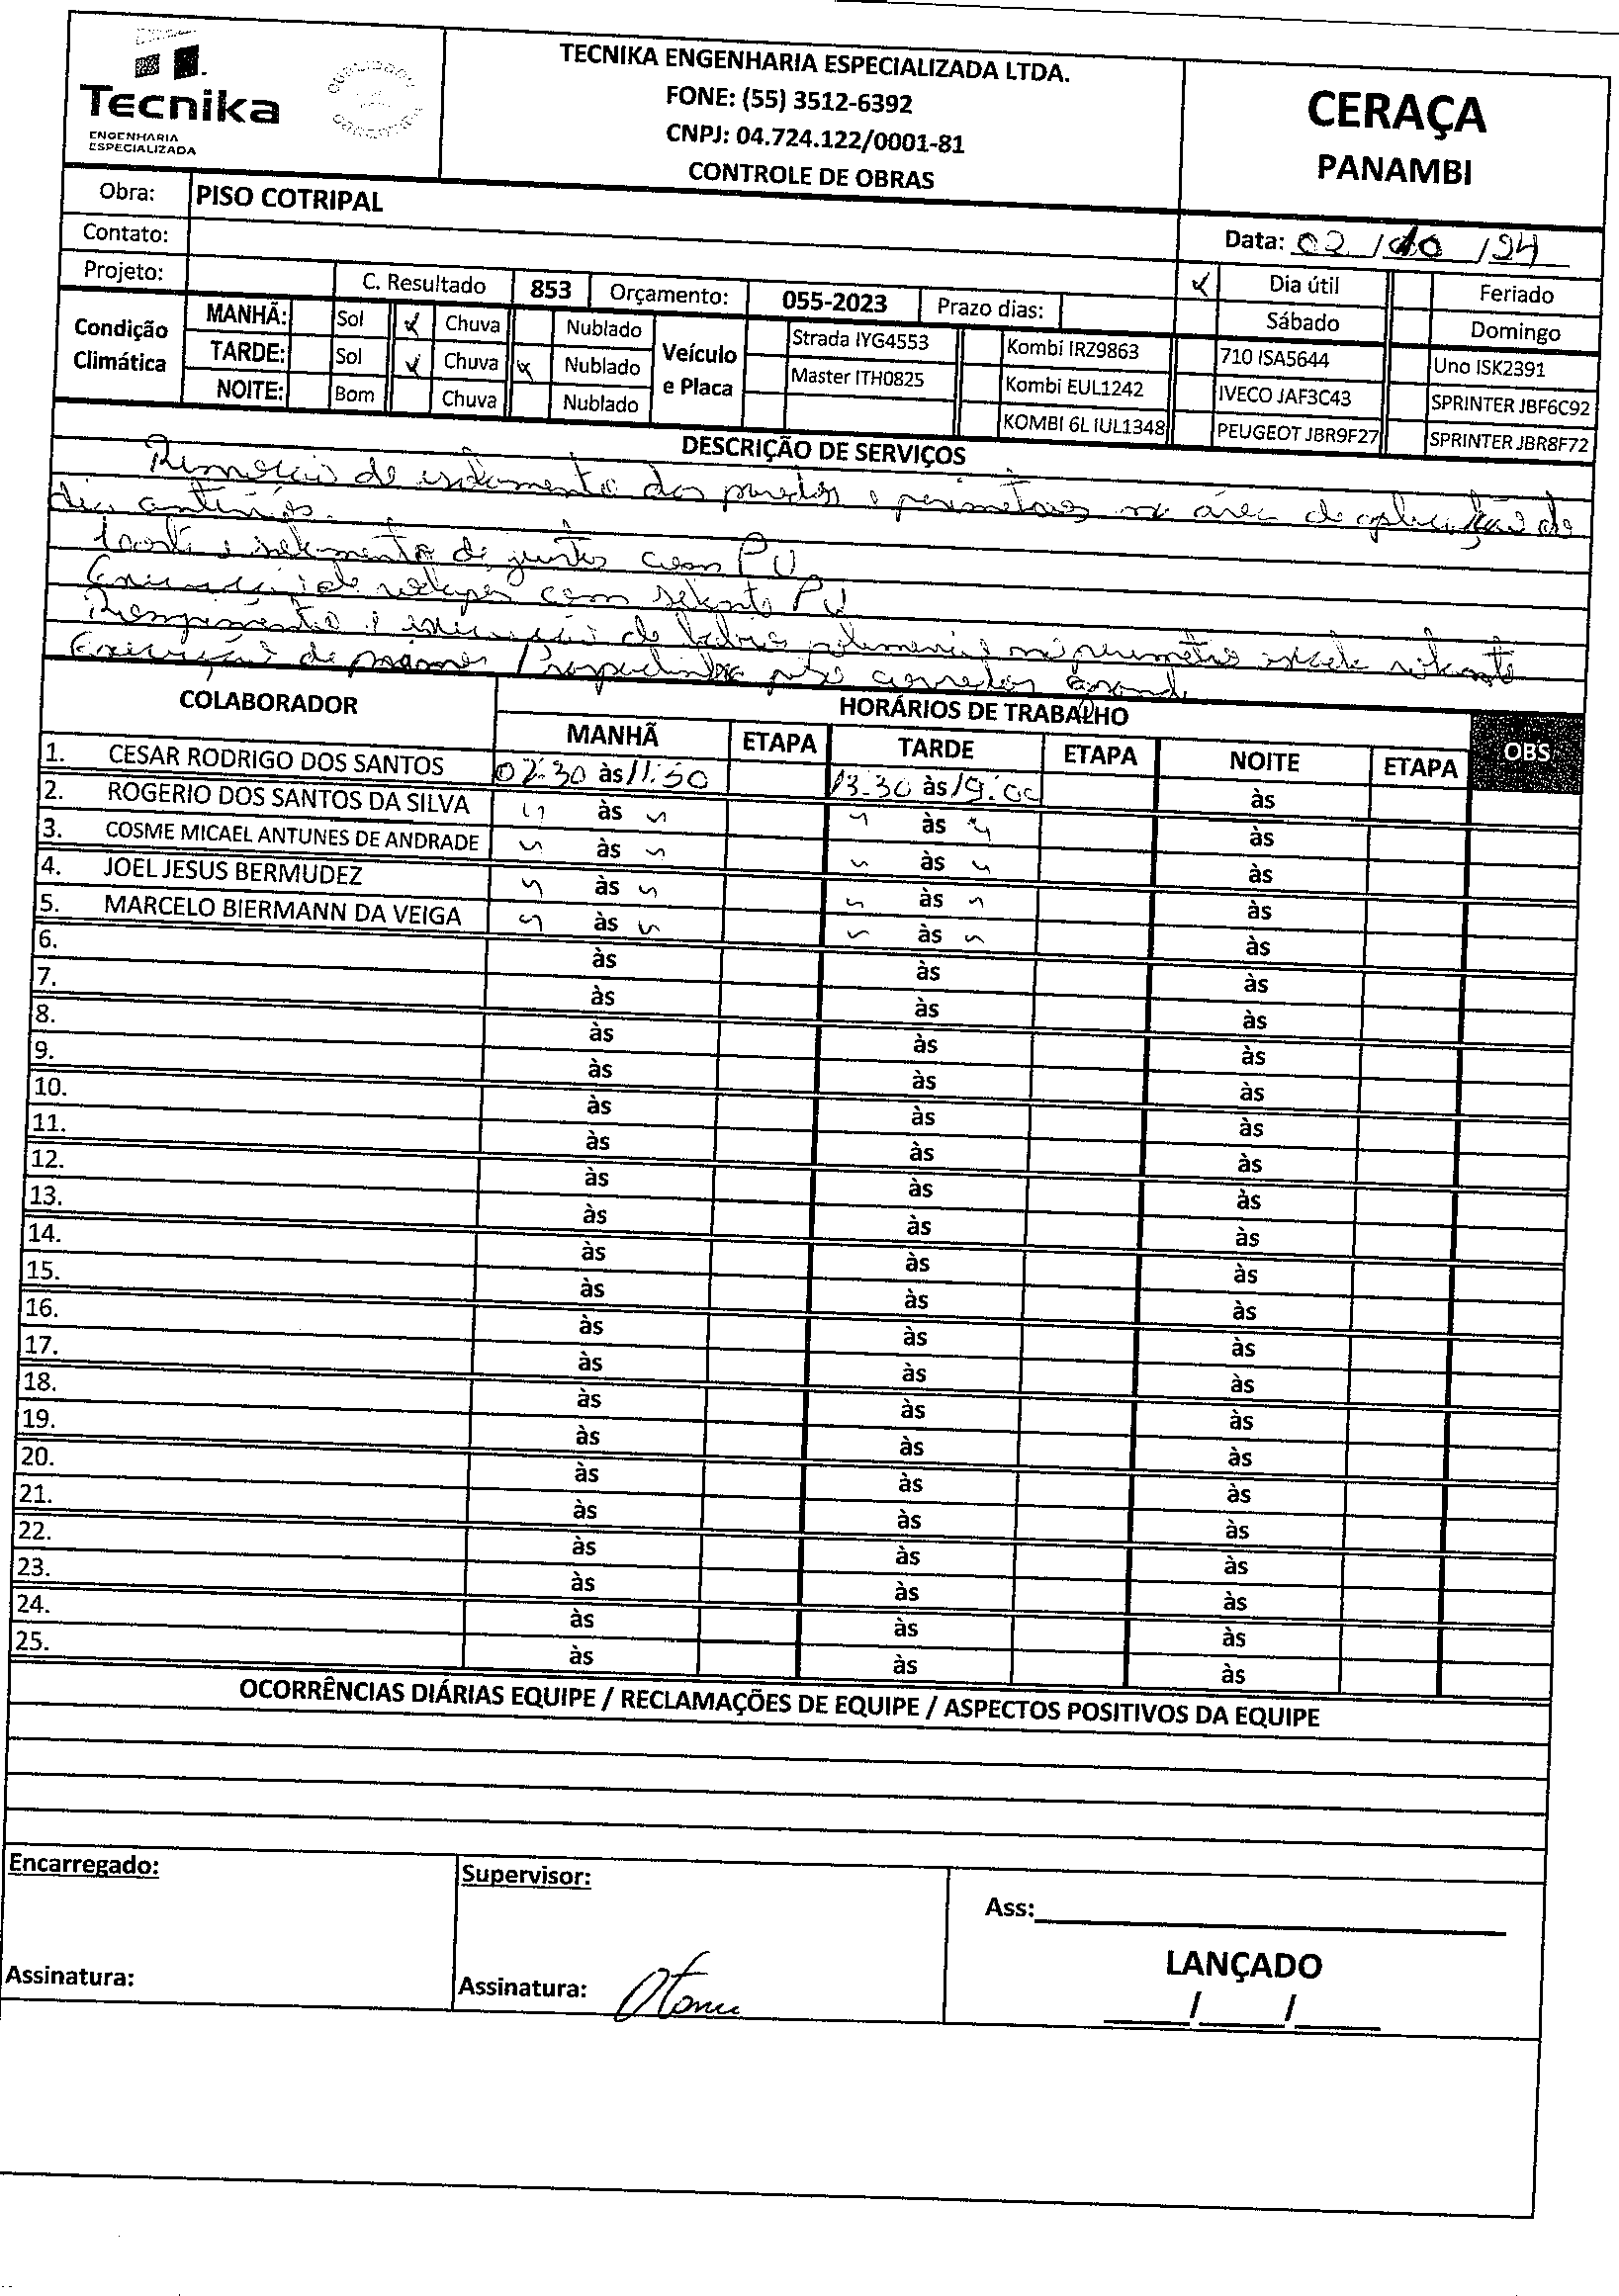 Tecnika
ENGENHARIA
ESPECIALIZADA
TECNIKA ENGENHARIA ESPECIALIZADA LTDA.
FONE: (55) 3512-6392
CNPJ: 04.724.122/0001-81
CONTROLE DE OBRAS
CERAÇA
PANAMBI
Obra: PISO COTRIPAL
Contato:
Data: 02 / 10 / 24
Projeto: C. Resultado 853 Orçamento: 055-2023 Prazo dias:
Dia útil Feriado
Sábado Domingo
Condição Climática
MANHÃ: Sol Chuva Nublado
TARDE: Sol Chuva Nublado
NOITE: Bom Chuva Nublado
Veículo e Placa
Strada IYG4553 Kombi IRZ9863 710 ISA5644 Uno ISK2391
Master ITH0825 Kombi EUL1242 IVECO JAF3C43 SPRINTER JBF6C92
KOMBI 6L IUL1348 PEUGEOT JBR9F27 SPRINTER JBR8F72
DESCRIÇÃO DE SERVIÇOS
Remoção de isolamento das paredes e perímetros na área de aplicação do
dia anterior.
Corte e selamento de juntas com PU
Execução de rodapés com selante PU
no perímetro
Execução de primer / piso corredor grande
COLABORADOR HORÁRIOS DE TRABALHO OBS
MANHÃ ETAPA TARDE ETAPA NOITE ETAPA
1. CESAR RODRIGO DOS SANTOS 07:30 às 11:50 13:30 às 19:00 às
2. ROGERIO DOS SANTOS DA SILVA " às " " às " às
3. COSME MICAEL ANTUNES DE ANDRADE " às " " às " às
4. JOEL JESUS BERMUDEZ " às " " às " às
5. MARCELO BIERMANN DA VEIGA " às " " às " às
6. às às às
7. às às às
8. às às às
9. às às às
10. às às às
11. às às às
12. às às às
13. às às às
14. às às às
15. às às às
16. às às às
17. às às às
18. às às às
19. às às às
20. às às às
21. às às às
22. às às às
23. às às às
24. às às às
25. às às às
OCORRÊNCIAS DIÁRIAS EQUIPE / RECLAMAÇÕES DE EQUIPE / ASPECTOS POSITIVOS DA EQUIPE
Encarregado:
Supervisor:
Ass:
LANÇADO
Assinatura:
Assinatura:
/ /